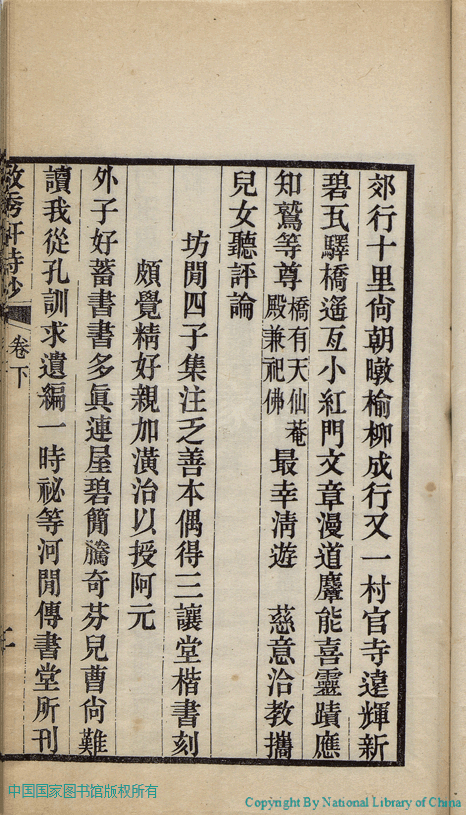 郊行十里尙朝暾榆柳成行又一村官寺遠輝新
碧瓦驛橋遙亙小紅門文章漫道麞能喜靈蹟應
知鷲等尊橋有天仙菴殿兼祀佛最幸淸遊　慈意洽教攜
兒女聽評論
坊閒四子集注乏善本偶得三讓堂楷書刻
頗覺精好親加潢治以授阿元
外子好蓄書書多眞連屋碧簡騰奇芬兒曹尙難
讀我從孔訓求遺編一時祕等河閒傳書堂所刊
秀軒詩鈔
卷下
中国国家图书馆版权所有
Copyright By National Library of China